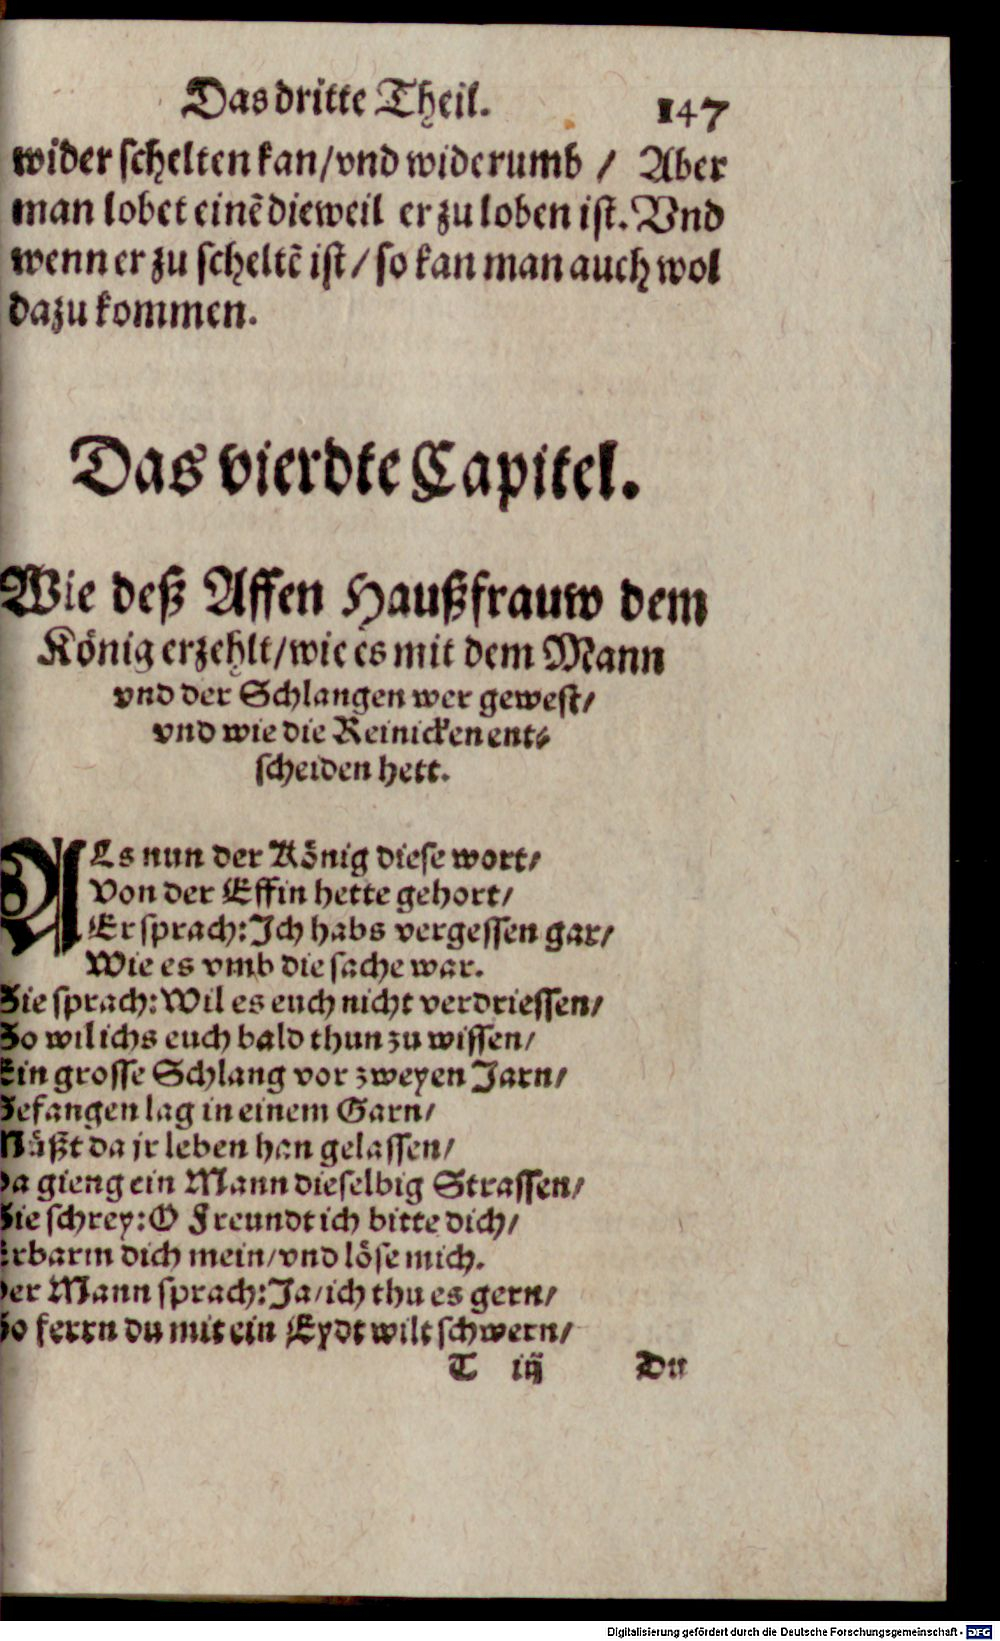 Das dritte Theil. 147
wider schelten kan/vnd widerumb / Aber
man lobet einē dieweil er zu loben ist. Vnd
wenn er zu scheltē ist/ so kan man auch wol
dazu kommen.
Das vierdte Capitel.
Wie deß Affen Haußfrauw dem
König erzehlt/wie es mit dem Mann
vnd der Schlangen wer gewest/
vnd wie die Reinicken ent-
scheiden hett.
ALs nun der König diese wort/
Von der Effin hette gehort/
Er sprach: Ich habs vergessen gar/
Wie es vmb die sache war.
Sie sprach: Wil es euch nicht verdriessen/
So wil ichs euch bald thun zu wissen/
Ein grosse Schlang vor zweyen Jarn/
Gefangen lag in einem Garn/
Müßt da jr leben han gelassen/
Da gieng ein Mann dieselbig Strassen/
Sie schrey: O Freundt ich bitte dich/
Erbarm dich mein/vnd löse mich.
Der Mann sprach: Ja/ich thu es gern/
So ferrn du mit ein Eydt wilt schwern/
T iij Du
Digitalisierung gefördert durch die Deutsche Forschungsgemeinschaft - DFG